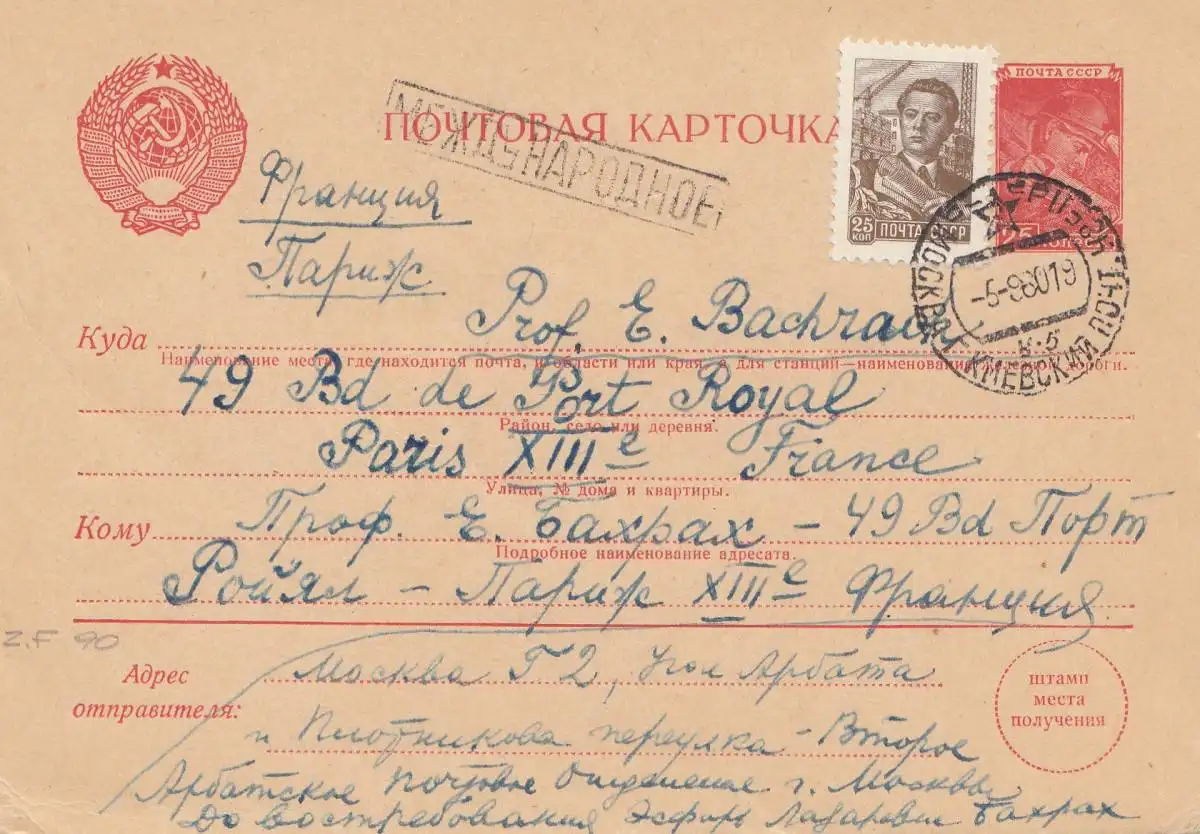 ПОЧТОВАЯ КАРТОЧКА
МЕЖДУНАРОДНОЕ
25 КОП ПОЧТА СССР
ПОЧТА СССР
25
МОСКВА КИЕВСКИЙ ПОЧТ
К-5
Франция
Париж
Куда Prof. E. Bachrach
Наименование места, где находится почта, и области или края, а для станций—наименование железной дороги.
49 Bd de Port Royal
Район, село или деревня.
Paris XIIIe France
Улица, № дома и квартиры.
Кому Проф. Е. Бахрах – 49 Bd Порт
Подробное наименование адресата.
Ройял – Париж XIIIe Франция
Z.F 90
Адрес отправителя: Москва Г2, угол Арбата
и Плотникова переулка – Второе
Арбатское Почтовое Отделение г. Москвы
До востребования Эсфирь Бахрах
штамп
места
получения